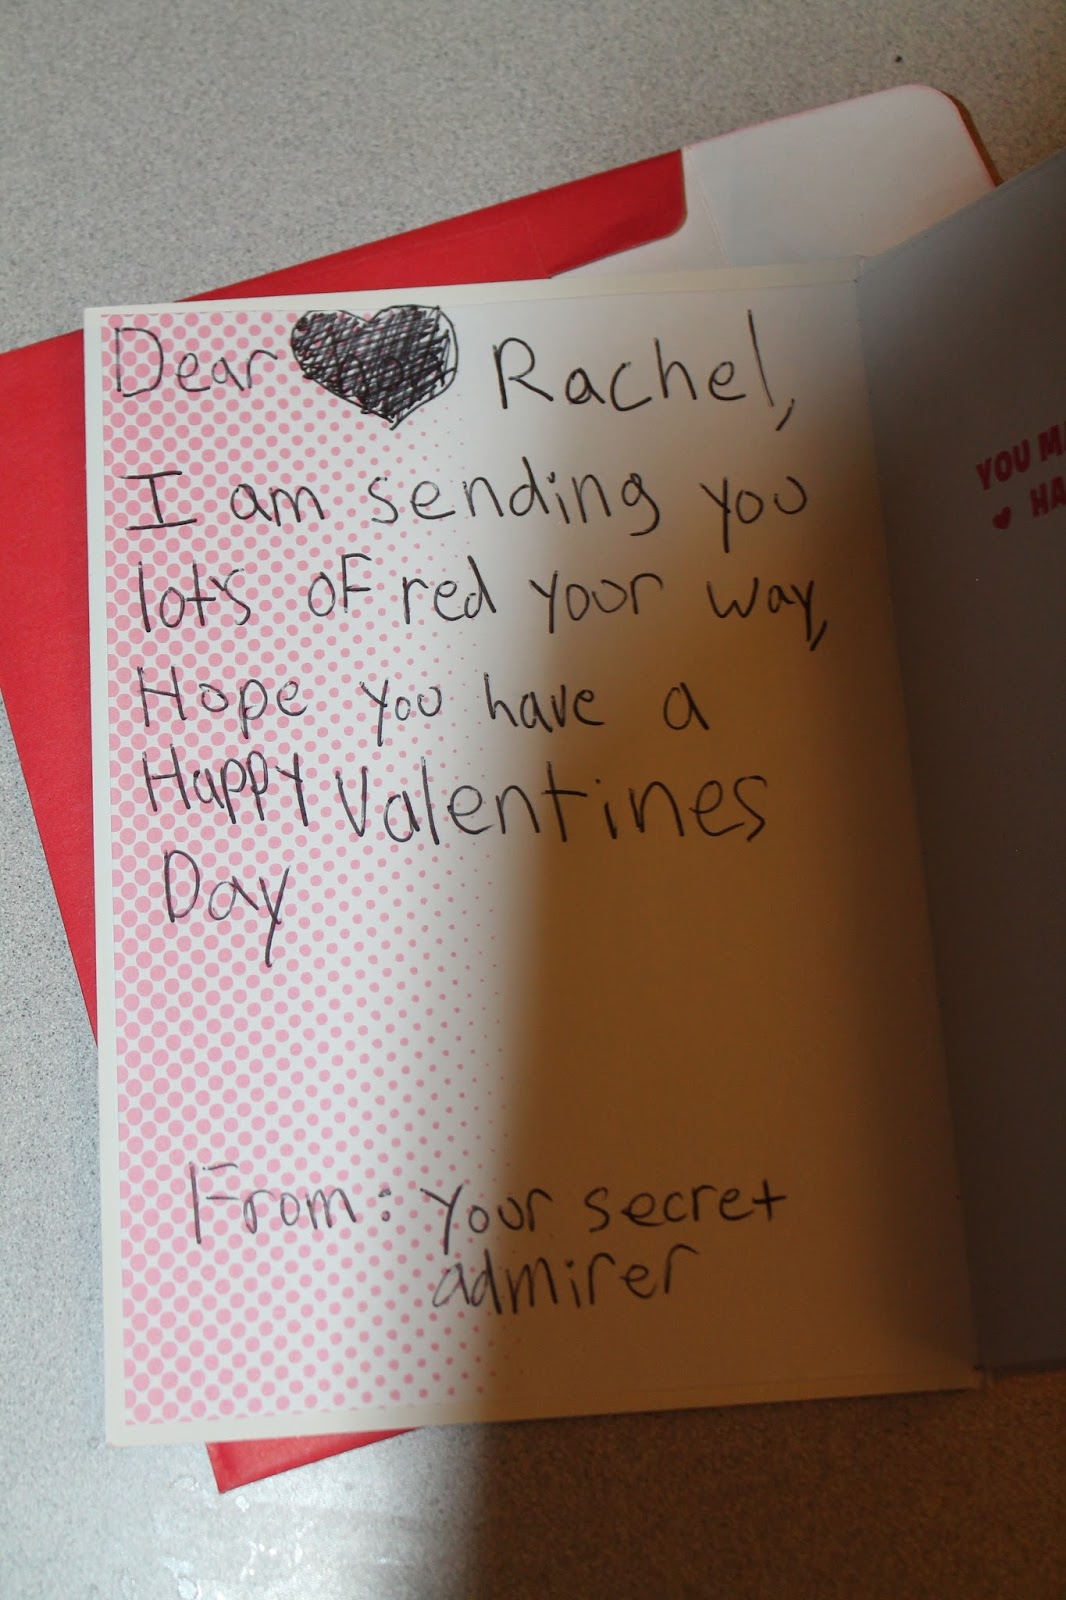 Dear Rachel,
I am sending you
lots of red your way,
Hope you have a
Happy Valentines
Day
From: your secret
admirer
YOU